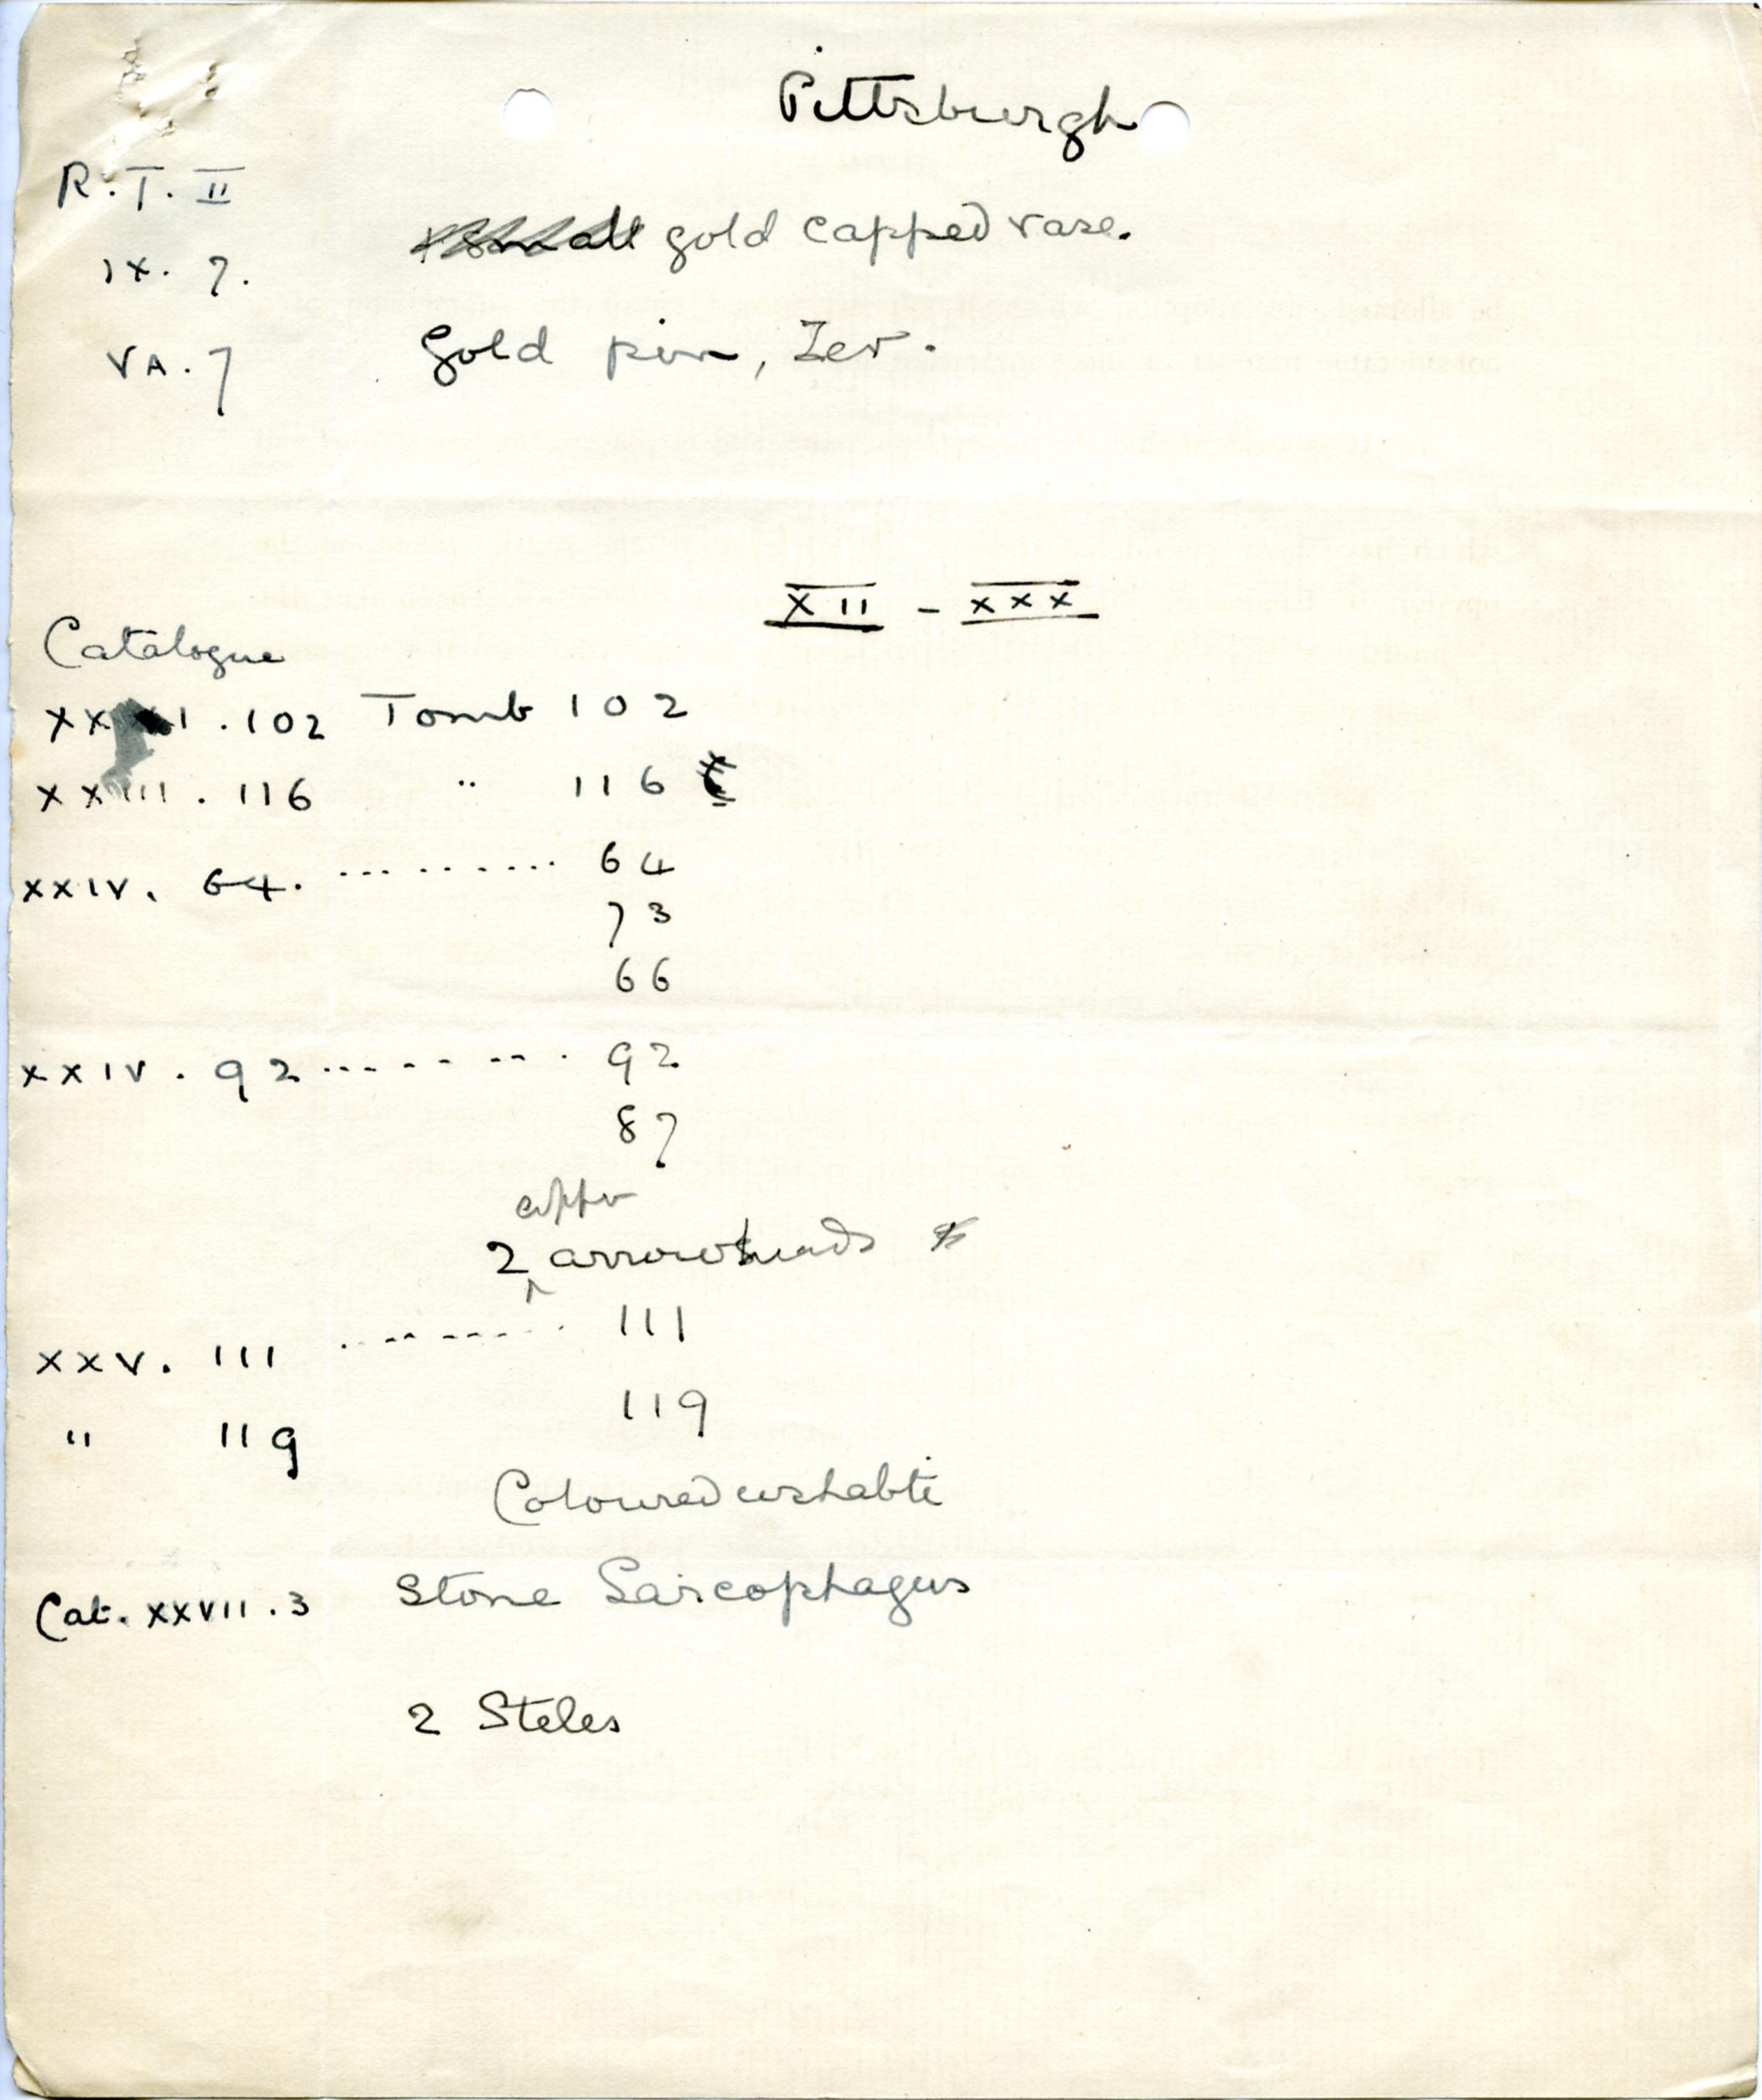 Pittsburgh
R.T. II
IX. 7. gold capped vase.
VA. 7 Gold pin, Zer.
XII - XXX
Catalogue
102 Tomb 102
XXIII. 116 " 116
XXIV. 64. .......... 64
73
66
XXIV. 92 .......... 92
87
copper
2 arrowheads
XXV. 111 .......... 111
" 119 119
Coloured ushabti
Cat. XXVII. 3 Stone Sarcophagus
2 Steles